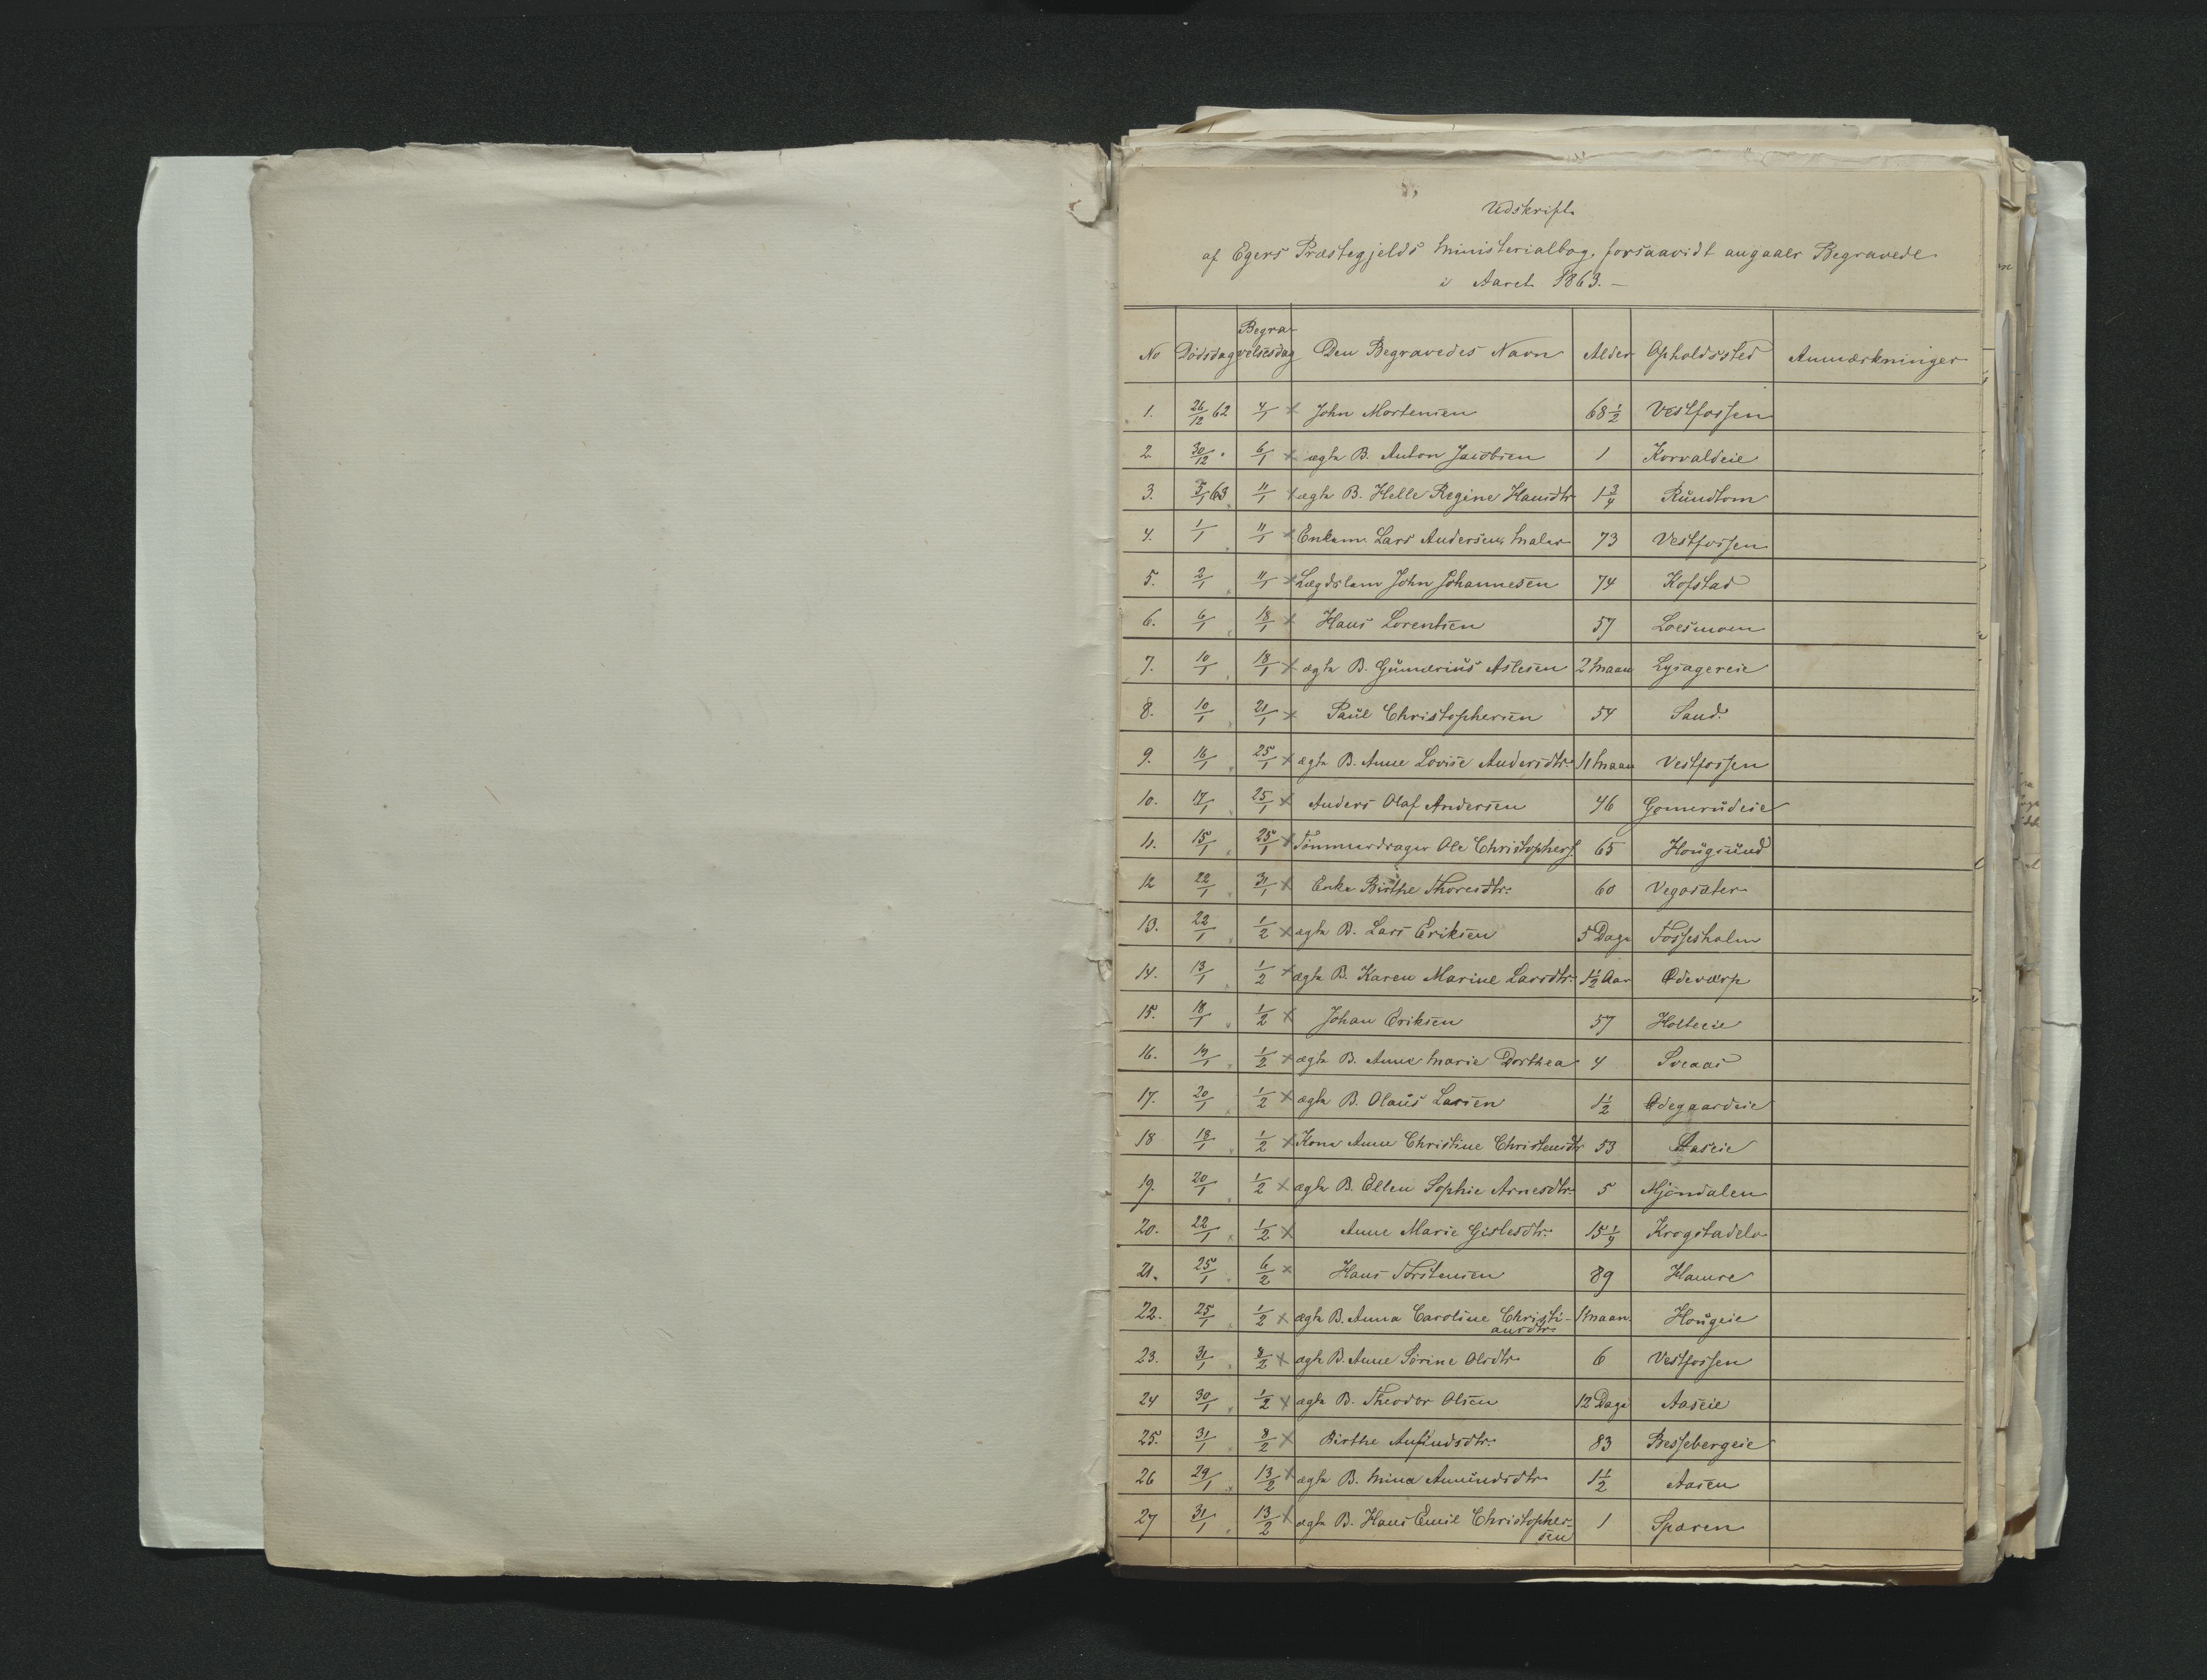 Udskrift
af Egers Præstegjelds Ministerialbog, forsaavidt angaaer Begravede
i Aaret 1863. —
No Dødsdag Begravelsesdag Den Begravedes Navn Alder Opholdssted Anmærkninger
1. 26/12 62 4/1 x John Mortensen 68 1/2 Vestfossen
2. 30/12 " 6/1 x ægte B. Anton Jacobsen 1 Korvaldeie
3. 5/1 63 11/1 x ægte B. Helle Regine Hansdtr 1 3/4 Rundtom
4. 1/1 " 11/1 x Enkem. Lars Andersen, Maler 73 Vestfossen
5. 2/1 " 11/1 x Lægdslem John Johannesen 74 Kofstad
6. 6/1 " 18/1 x Hans Lorentsen 57 Loesmoen
7. 10/1 " 18/1 x ægte B. Gunerius Aslesen 2 Maan Lysagereie
8. 10/1 " 21/1 x Paul Christophersen 54 Sand.
9. 16/1 " 25/1 x ægte B. Anne Lovise Andersdtr 11 Maan Vestfossen
10. 17/1 " 25/1 x Anders Olaf Andersen 46 Gomerudeie
11. 15/1 " 25/1 x Tømmerdrager Ole Christophers. 65 Hougsund
12 22/1 " 31/1 x Enke Birthe Thoresdtr. 60 Vegosæter
13. 22/1 " 1/2 x ægte B. Lars Eriksen 5 Dage Fossesholm
14. 13/1 " 1/2 x ægte B. Karen Marine Larsdtr. 1 1/2 Aar Ødeværp
15. 18/1 " 1/2 x Johan Eriksen 57 Holteeie
16. 14/1 " 1/2 x ægte B. Anne Marie Dorthea 4 Sveaas
17. 20/1 " 1/2 x ægte B. Olaus Larsen 1 1/2 Ødegaardeie
18 18/1 " 1/2 x Kone Anne Christine Christensdtr 53 Aaseie
19. 20/1 " 1/2 x ægte B. Ellen Sophie Arnesdtr. 5 Mjøndalen
20. 22/1 " 1/2 x Anne Marie Gislesdtr. 15 1/4 Krogstadelv
21. 25/1 " 6/2 x Hans Torstensen 89 Hamre
22. 25/1 " 1/2 x ægte B. Anna Caroline Christi-
ansdtr. 1 Maan. Hougeie
23. 31/1 " 8/2 x ægte B. Anne Sørine Olsdtr. 6 Vestfossen
24 30/1 " 1/2 x ægte B. Theodor Olsen 12 Dage Aaseie
25. 31/1 " 8/2 x Birthe Anfindsdtr. 83 Bessebergeie
26 29/1 " 13/2 x ægte B. Mina Amundsdtr 1 1/2 Aasen
27 31/1 " 13/2 x ægte B. Hans Emil Christopher-
sen 1 Sparen